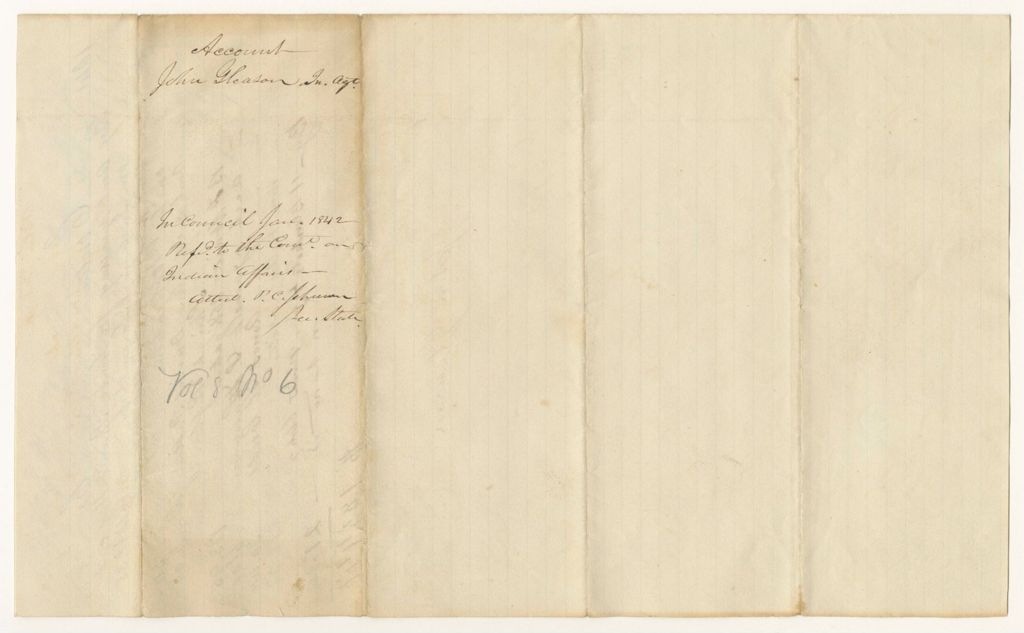 Account
John Gleason In. Agt.
In Council Jan. 1842
Refd. to the Come. on
Indian Affairs
Attest. P. C. Johnson
Sec. State
Vol 8 No 6